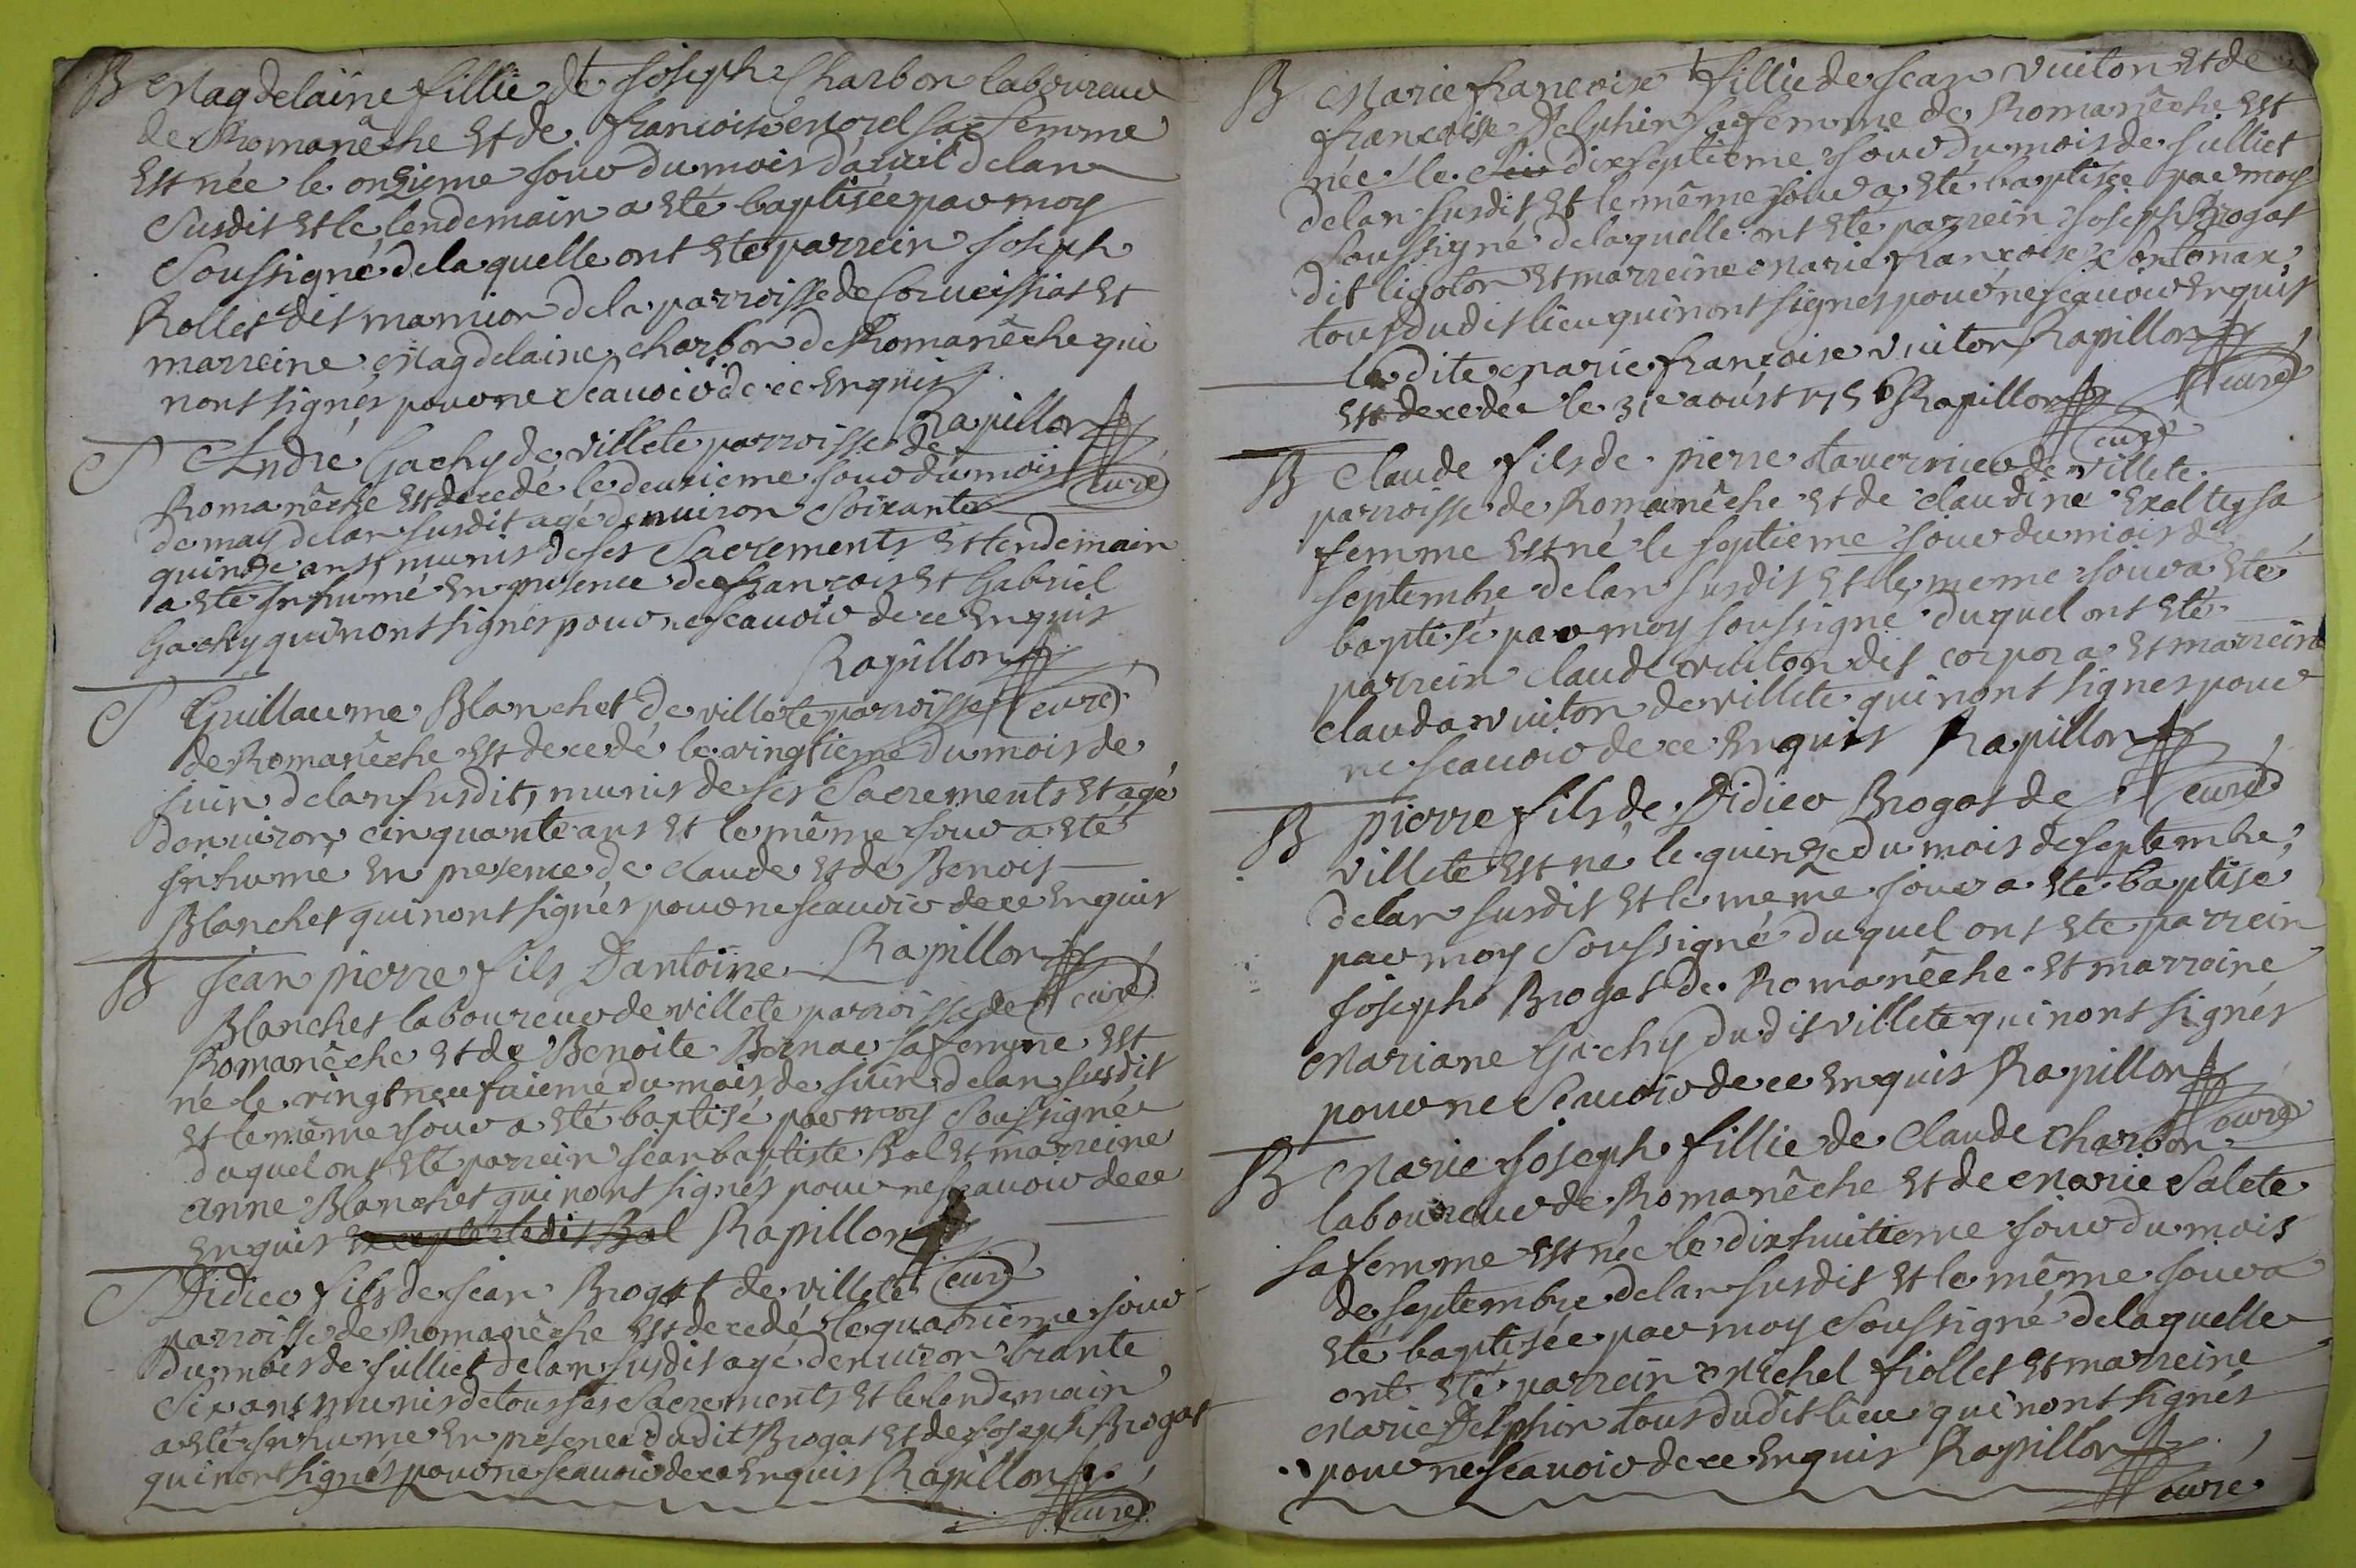 B Magdelaine fillie de Joseph Charbon laboureur
de Romanêche et de francoise morel sa femme
est née le onzieme jour du mois d'avril de lan
susdit et le lendemain a eté baptisée par moy
soussigné de la quelle ont eté parrein joseph
Rollet dit mamion de la parroisse de Corveissiat et
marreine Magdelaine charbon de Romanêche qui
nont signés pour ne scavoir de ce enquis
Rapillon
curé
S André Gachy de villete parroisse de
Romanêche est decedé le deuxieme jour du mois
de may de lan susdit agé denviron soixante
quinze ans munis de ses sacrements et lendemain
a eté inhumé en presence de françois et Gabriel
Gachy qui nont signés pour ne scavoir de ce enquis
Rapillon
curé
S Guillaume Blanchet de villete parroisse
de Romanêche est decedé le vingtieme du mois de
juin de lan susdit, munis de ses sacrements et agé
denviron cinquante ans et le même jour a eté
inhumé en presence de claude et de Benoit
Blanchet qui nont signés pour ne scavoir de ce enquis
Rapillon
curé
B Jean pierre fils dantoine
Blanchet laboureur de villete parroisse de
Romanêche et de Benoite Bernac sa femme est
né le vingt neufuieme du mois de juin de lan susdit
et le même jour a eté baptisé par moy soussigné
duquel ont eté parrein jean baptiste Bal et marreine
anne Blanchet qui nont signés pour ne scavoir de ce
enquis excepté ledit Bal Rapillon
curé
S Didier fils de jean Brogat de villete
parroisse de Romanêche est decedé le quatrieme jour
du mois de julliet de lan susdit agé denviron trante
six ans munis de tous ses sacrements et le lendemain
a eté inhumé en présence dudit Brogat et de joseph Brogat
qui nont signés pour ne scavoir de ce enquis Rapillon
curé
B Marie françoise fillie de jean vuiton et de
françoise Delphin sa femme de Romanêche est
née le dix septieme jour du mois de julliet
de lan susdit et le même jour a eté baptisée par moy
soussigné de la quelle ont eté parrein joseph Brogat
dit ligoton et marreine marie françoise Sontonax
tous dudit lieu qui nont signés pour ne scavoir enquis
Rapillon
curé
la dite marie françoise vuiton
est decedée le 31e aoust 1756 Rapillon
curé
B Claude fils de pierre tavernier de villete
parroisse de Romanêche et de claudine Exaltey sa
femme est né le septieme jour du mois de
septembre de lan susdit et le meme jour a eté
baptisé par moy soussigné duquel ont eté
parrein claude vuiton dit corpora et marreine
clauda vuiton de villete qui nont signés pour
ne scavoir de ce enquis Rapillon
curé
B pierre fils de Didier Brogat de
villete est né le quinze du mois de septembre
de lan susdit et le même jour a eté baptisé
par moy soussigné duquel ont eté parrein
joseph Brogat de Romanêche et marreine
Mariane Gachy dudit villete qui nont signés
pour ne scavoir de ce enquis Rapillon
curé
B Marie joseph fillie de Claude charbon
laboureur de Romanêche et de Marie Salete
sa femme est née le dixhuitieme jour du mois
de septembre de lan susdit et le même jour a
eté baptisée par moy soussigné de laquelle
ont eté parrein Michel fiollet et marreine
Marie Delphin tous dudit lieu qui nont signés
pour ne scavoir de ce enquis Rapillon
curé